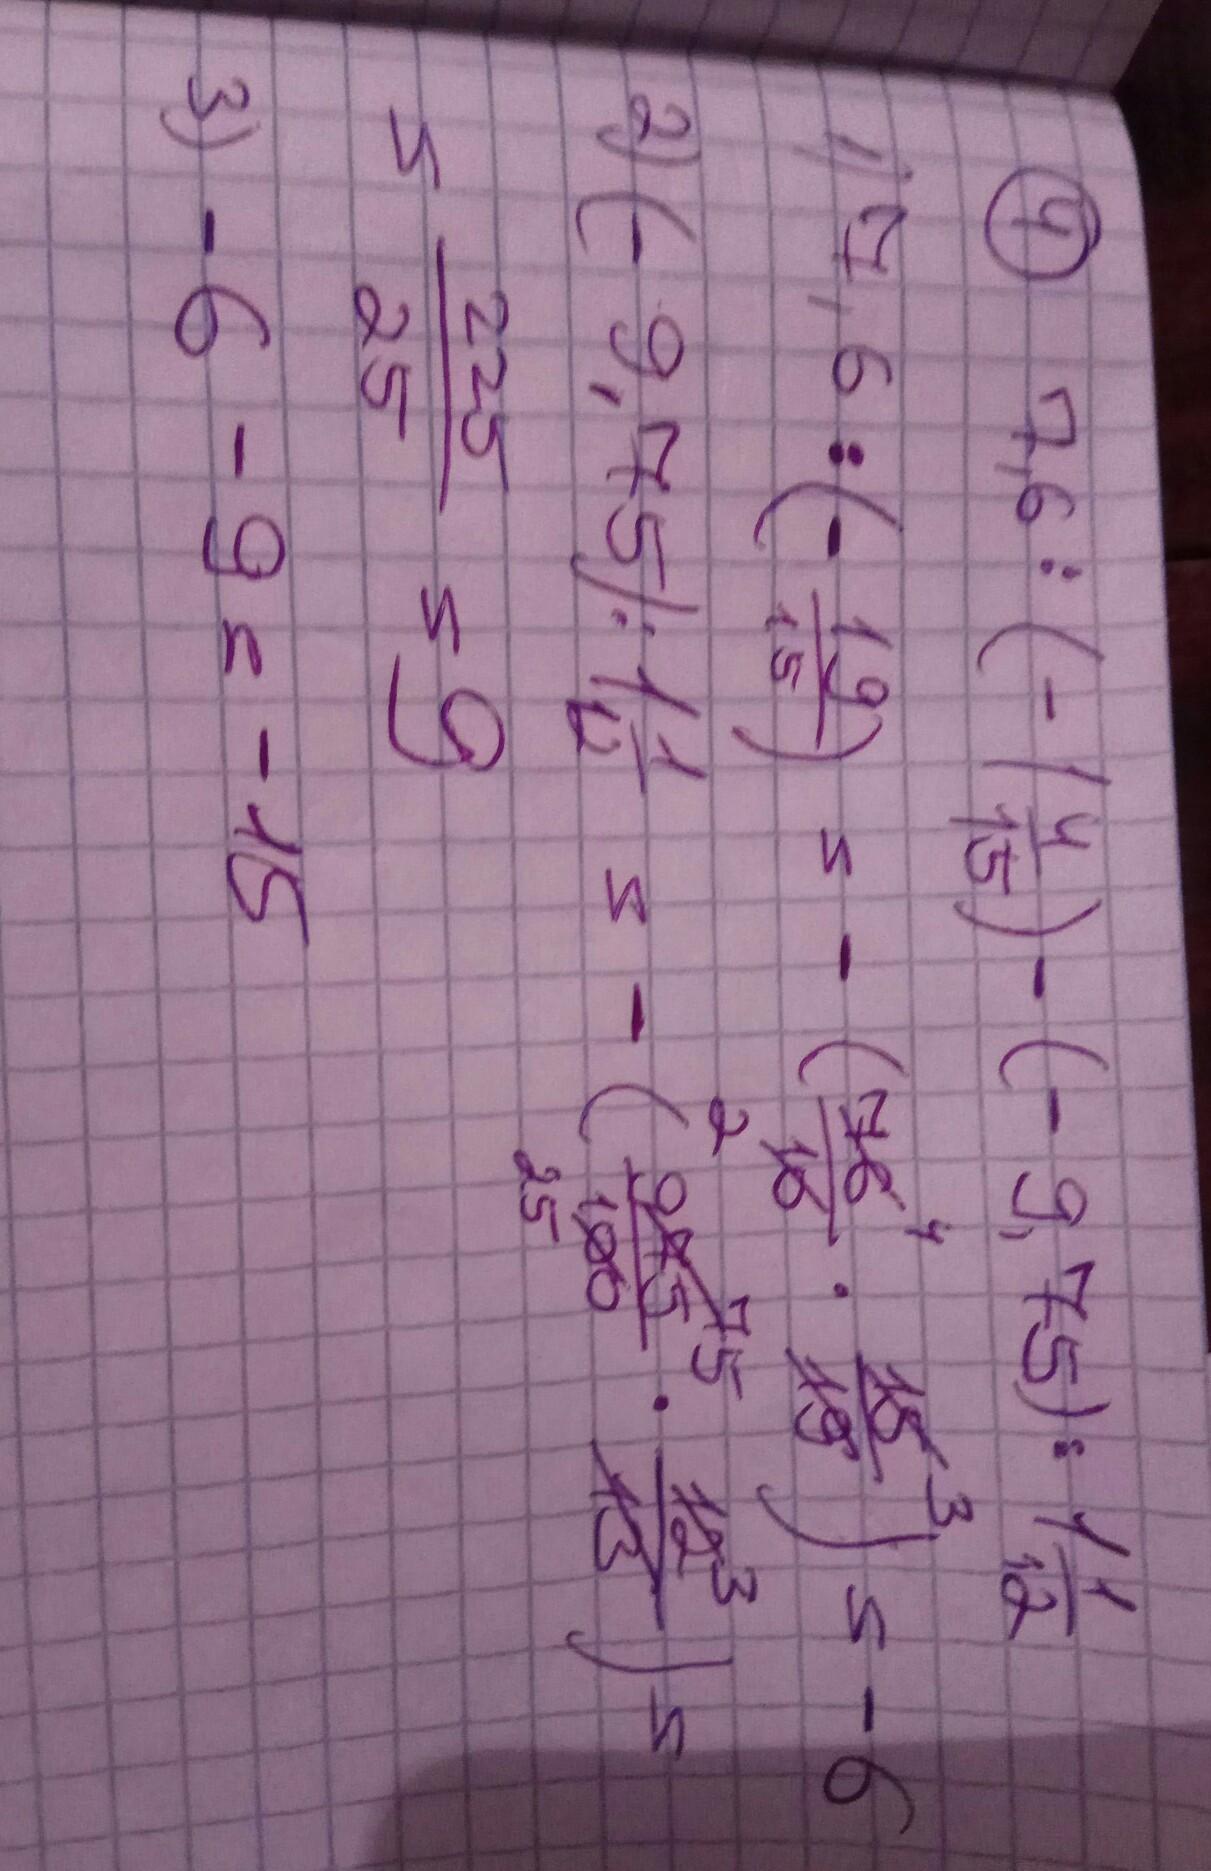 ④ 7,6 : (-1 4/15) - (-9,75) : 1 1/12
1) 7,6 : (- 19/15) = - (76/10 4 2 · 15/19 3) = -6
2) (-9,75) : 1 1/12 = - (975/100 75 25 · 12/13 3) =
= 225/25 = 9
3) -6 - 9 = -15